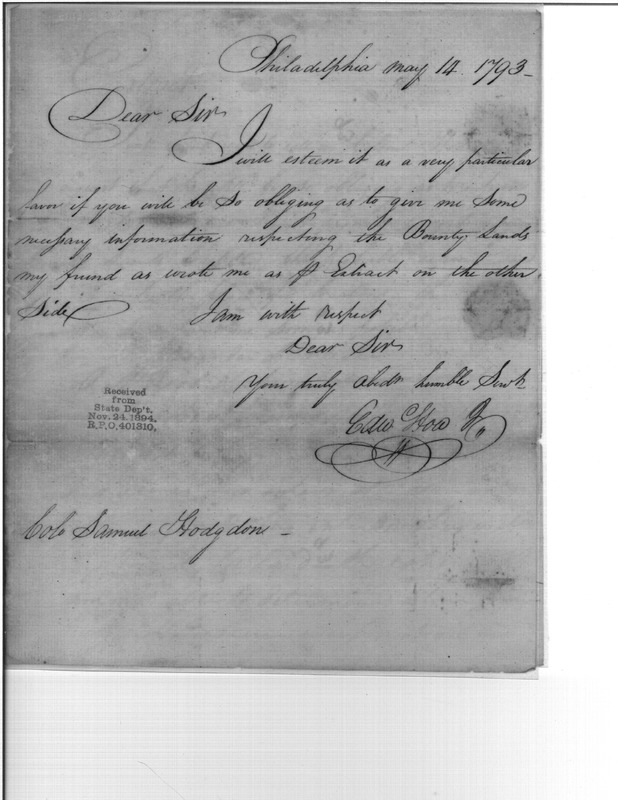 Philadelphia may 14. 1793—
Dear Sir
I will esteem it as a very particular
favor if you will be so obliging as to give me some
necessary information respecting the Bounty Lands
my friend as wrote me as Extract on the other
Side I am with respect
Dear Sir
Your truly obedt humble Servt
Edw How Jr
Received
from
State Dep't.
Nov. 24. 1894.
R.P.O. 401310.
Colo Samuel Hodgdon —